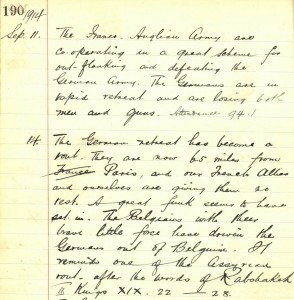 190 1914
Sep. 11. The Franco-Anglian Army are
co-operating in a great scheme for
out-flanking and defeating the
German Army. The Germans are in
rapid retreat and are losing both
men and guns. Attendance 94.1
14. The German retreat has become a
rout. They are now 65 miles from
France Paris, and our French Allies
and ourselves are giving them no
rest. A great funk seems to have
set in. The Belgians with their
brave little force have driven the
Germans out of Belguim. It
reminds one of the Assyrian
rout. after the words of Rabshakeh
II Kings XIX. 22 — 28.